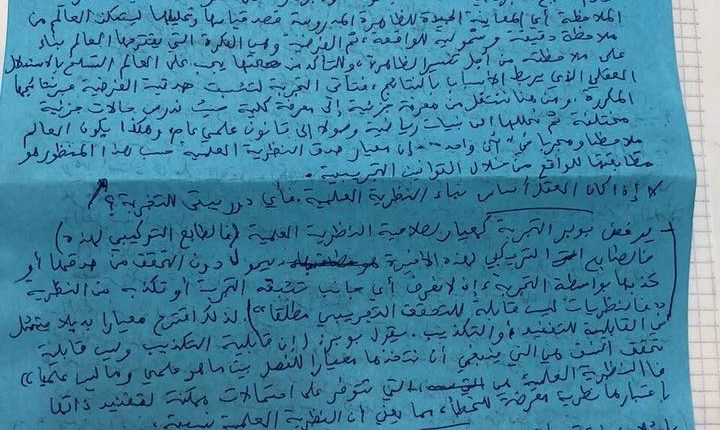 الملاحظة أي المعاينة الجيدة للظاهرة المدروسة قصد قياسها وتحليلها ليتمكن العالم من
ملاحظة دقيقة وشمولية للواقعة، ثم الفرضية وهي الفكرة التي يقترحها العالم بناء
على ملاحظته من أجل تفسير الظاهرة، وللتأكد من صحتها يجب على العالم التسلح بالاستدلال
العقلي الذي يربط الأسباب بالنتائج، فتأتي التجربة لتثبت صدقية الفرضية
المكررة، ومن هنا ننتقل من معرفة جزئية إلى معرفة كلية حيث ندرس حالات جزئية
مختلفة ثم نحللها إلى بنيات رياضية وصولا إلى قانون علمي عام، وهكذا يكون العالم
ملاحظا ومجربا في "آن واحد". إن معيار صدق النظرية العلمية حسب هذا المنظور هو
مطابقتها للواقع من خلال القوانين التجريبية.
إذا كان العقل أساس بناء النظرية العلمية. فأي دور يبقى للتجربة؟
يرفض بوبر التجربة كمعيار لصلاحية النظرية العلمية (فالطابع التركيبي لهذه)
فالطابع التركيبي لهذه الأخيرة يحول دون التحقق من صدقها أو
كذبها بواسطة التجربة، إذ لا نعرف أي جانب تثبته التجربة أو تكذبه من النظرية
"فالنظريات ليست قابلة للتحقق التجريبي مطلقا") لذلك اقترح معيارا بديلا يتمثل
في القابلية للتفنيد أو التكذيب. يقول بوبر: (إن قابلية التكذيب وليس قابلية
تحقق النسق هي التي ينبغي أن نتخذها معيارا للفصل بين ما هو علمي وما ليس علميا»
فالنظرية العلمية هي التي تتوفر على احتمالات ممكنة لتفنيد ذاتها
باعتبارها نظرية معرضة للخطأ، مما يعني أن النظرية العلمية نسبية.